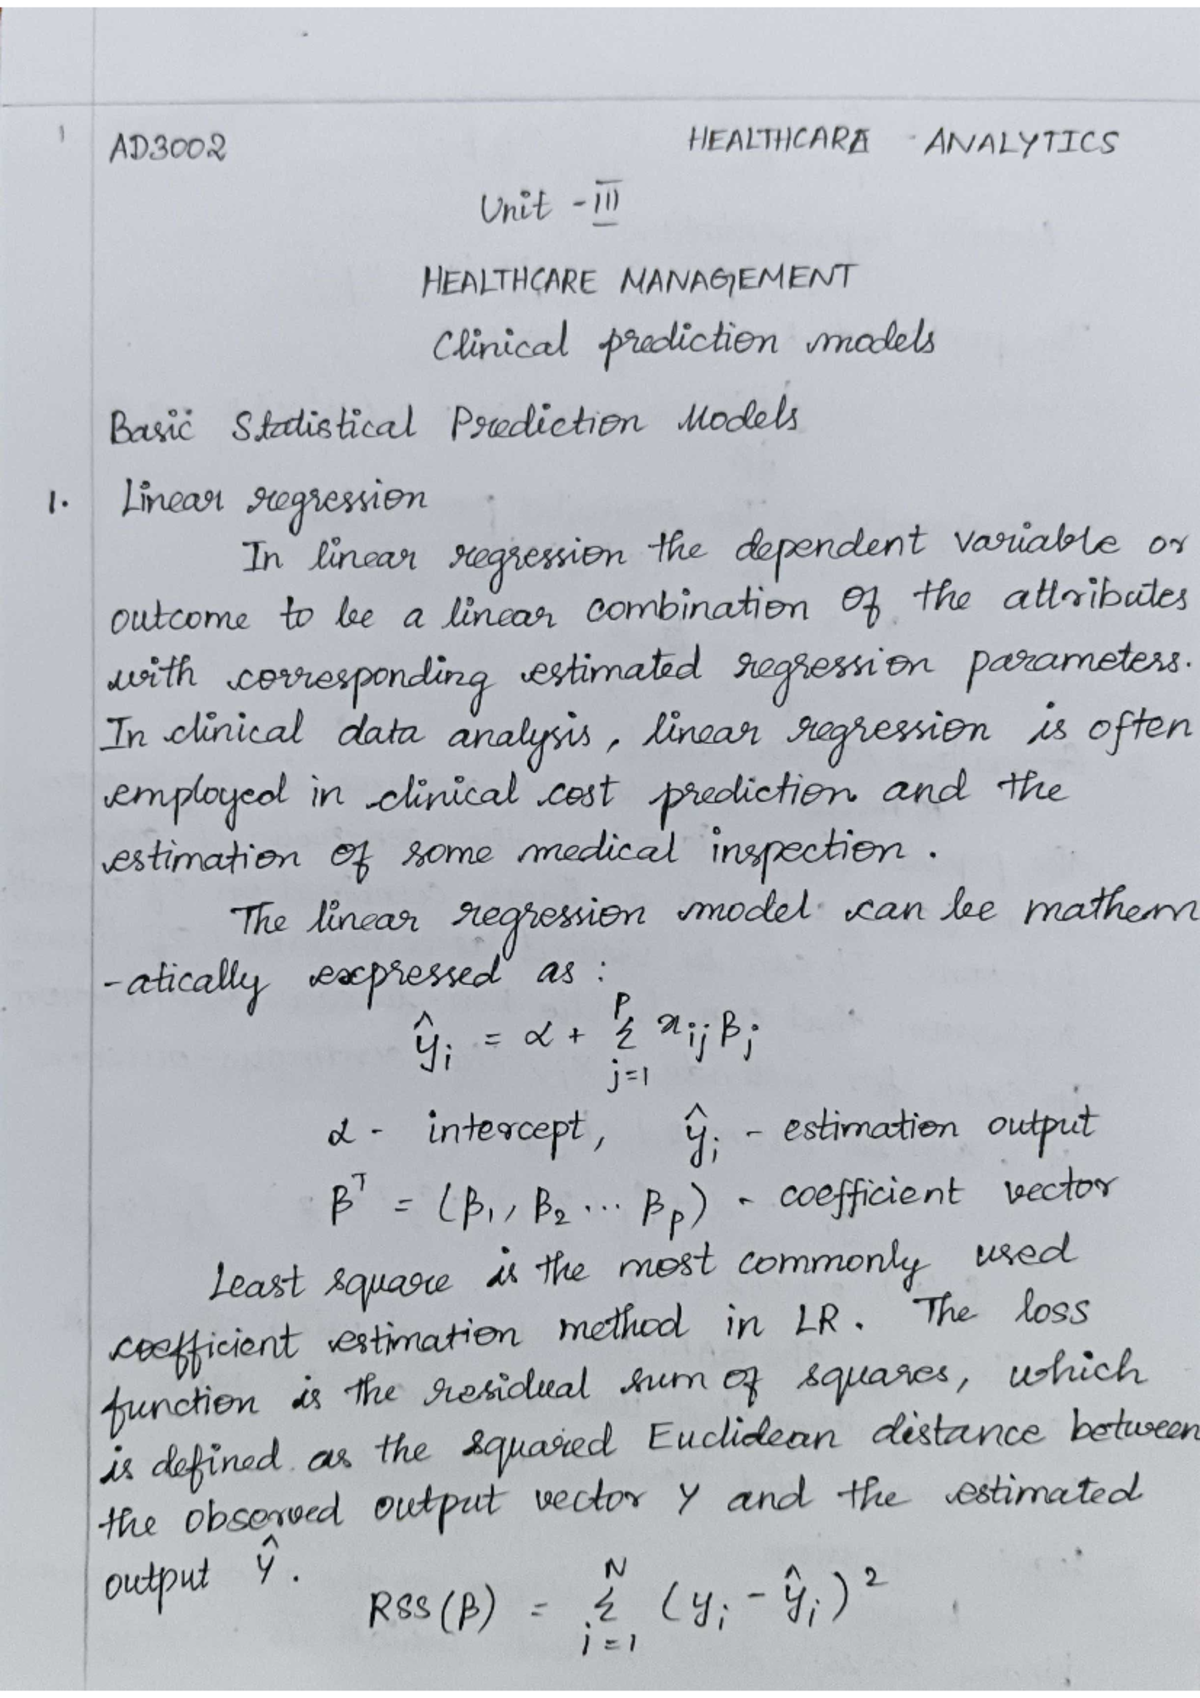 1
AD3002 HEALTHCARE ANALYTICS
Unit - III
HEALTHCARE MANAGEMENT
Clinical prediction models
Basic Statistical Prediction Models
1. Linear regression
In linear regression the dependent variable or
outcome to be a linear combination of the attributes
with corresponding estimated regression parameters.
In clinical data analysis, linear regression is often
employed in clinical cost prediction and the
estimation of some medical inspection.
The linear regression model can be mathem
-atically expressed as :
ŷᵢ = α + Σ_{j=1}^{P} xᵢⱼ βⱼ
α - intercept, ŷᵢ - estimation output
βᵀ = (β₁, β₂ ... βₚ) - coefficient vector
Least square is the most commonly used
coefficient estimation method in LR. The loss
function is the residual sum of squares, which
is defined as the squared Euclidean distance between
the observed output vector y and the estimated
output ŷ.
RSS(β) = Σ_{i=1}^{N} (yᵢ - ŷᵢ)²